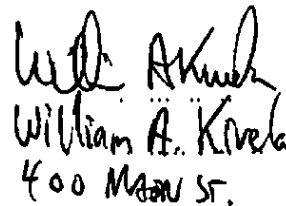 William A. Kivela
400 MAIN ST.